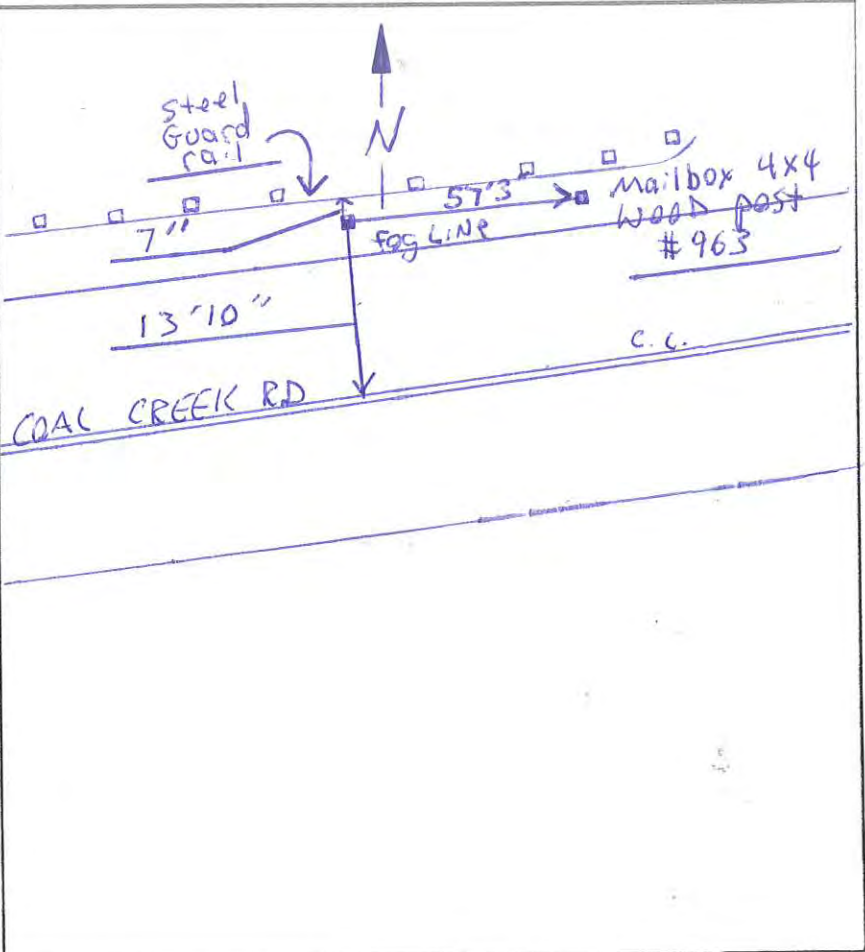 Steel
Guard
rail
N
57'3"
Mailbox 4x4
WOOD post
#963
7"
Fog LiNe
13'10"
COAL CREEK RD